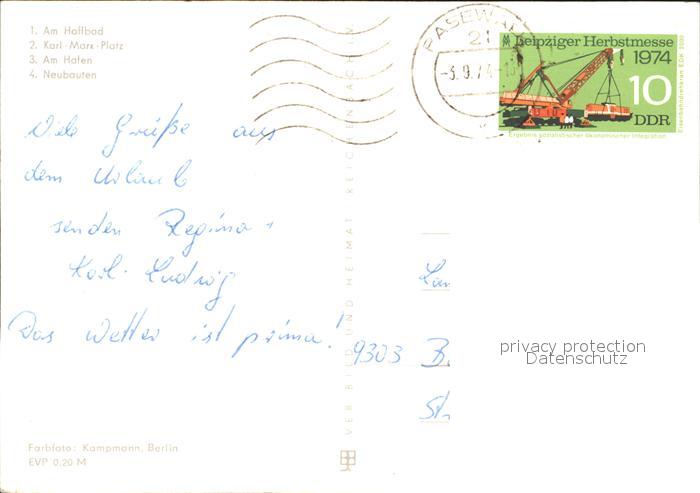 1. Am Haffbad
2. Karl-Marx-Platz
3. Am Hafen
4. Neubauten
Viele Grüße aus
dem Urlaub
senden Regina +
Karl-Ludwig
Das Wetter ist prima!
Farbfoto: Kampmann, Berlin
EVP 0,20 M
VERBILD UND HEIMAT REICHENBACH
PASEWALK
21
-3.9.74-
Leipziger Herbstmesse
1974
10
DDR
Eisenbahndrehkran EDK 2000
Ergebnis sozialistischer ökonomischer Integration
9303 B.
St
privacy protection
Datenschutz